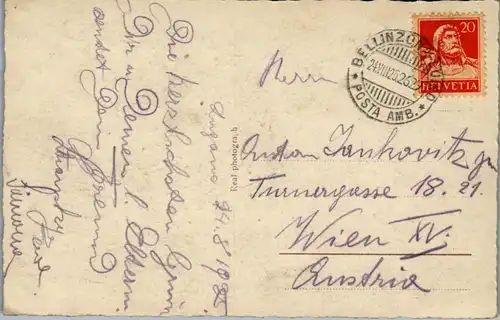 Lugano 24.8 1925
Die herzlichsten Grüße
Dir u. Deinen l. Eltern
sendet Dein Freund
BELLINZO
24.VIII.25
POSTA AMB.
20
HELVETIA
Real photograph
Herrn
Anton Jankovitz jr.
Turnergasse 18. 21.
Wien XV.
Austria